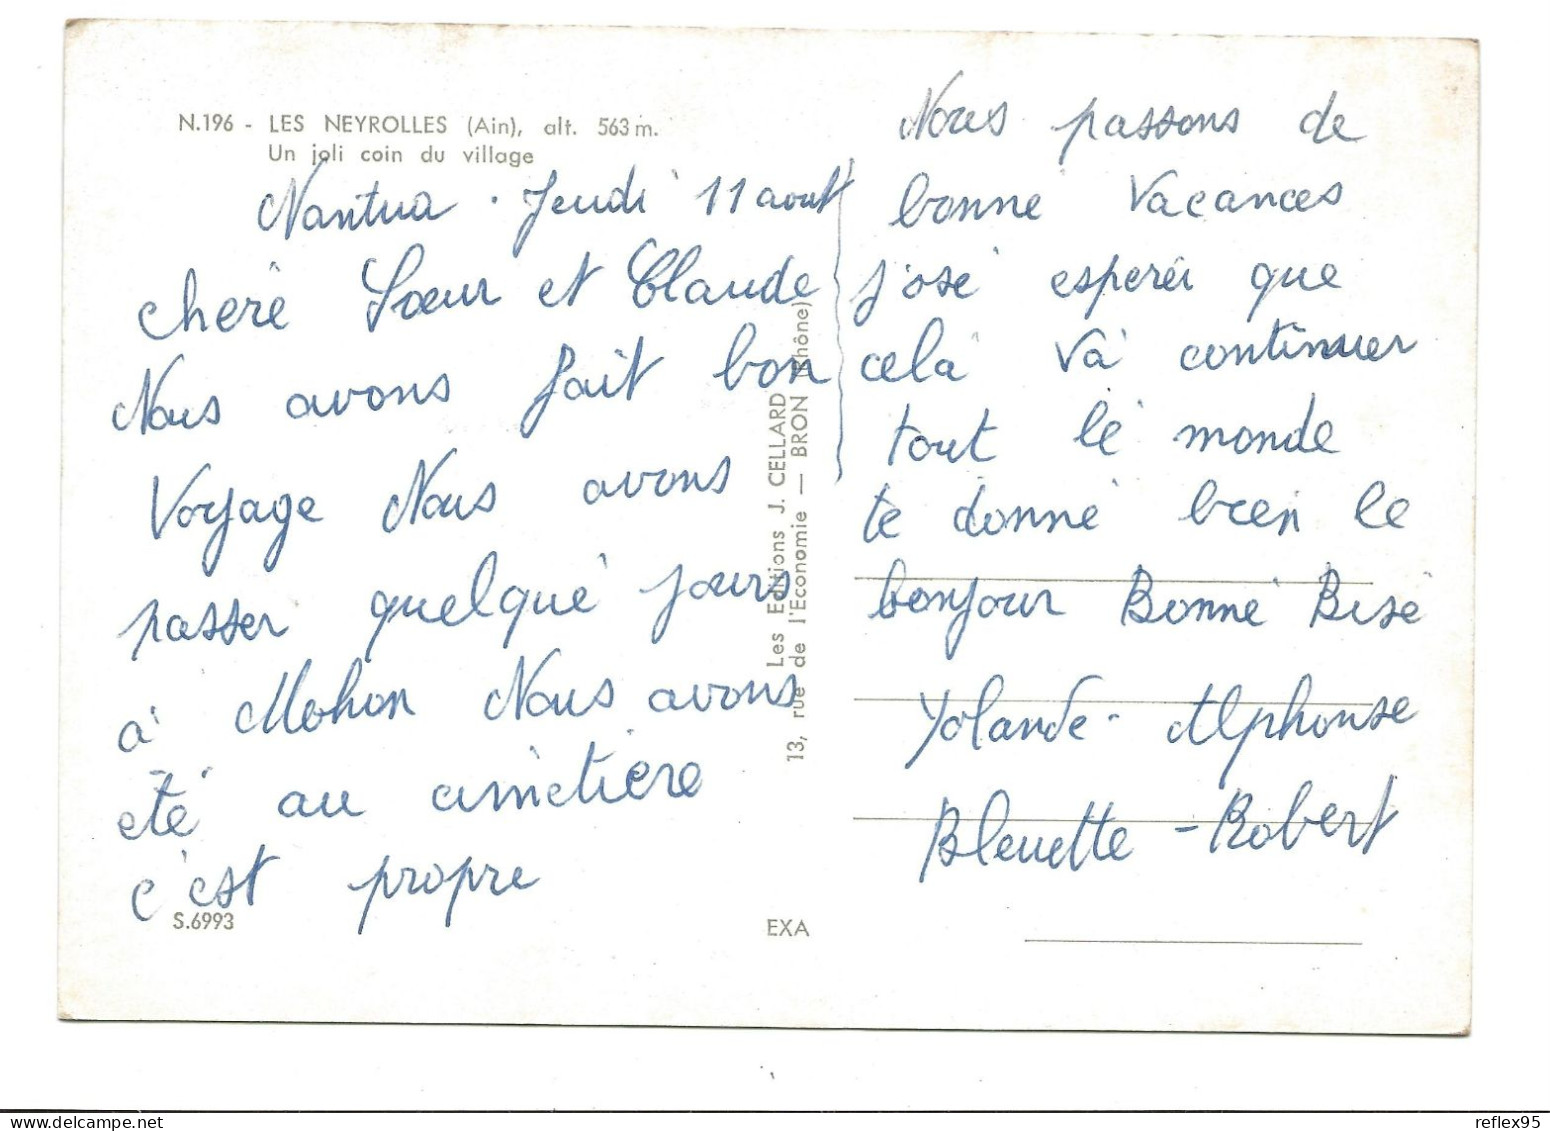 N.196 - LES NEYROLLES (Ain), alt. 563 m.
Un joli coin du village
Nantua . Jeudi 11 aout
cheré Sœur et Claude
Nous avons fait bon
Voyage Nous avons
passer quelqué jours
à Mohon Nous avons
été au cimetière
c'est propre
S.6993
Les Editions J. CELLARD
13, rue de l'Economie — BRON (Rhône)
EXA
Nous passons de
bonné Vacances
j'osé esperér que
celà và continuer
tout lé monde
te donné bien le
bonjour Bonné Bisé
Yolande - Alphonse
Bleuette - Robert
reflex95